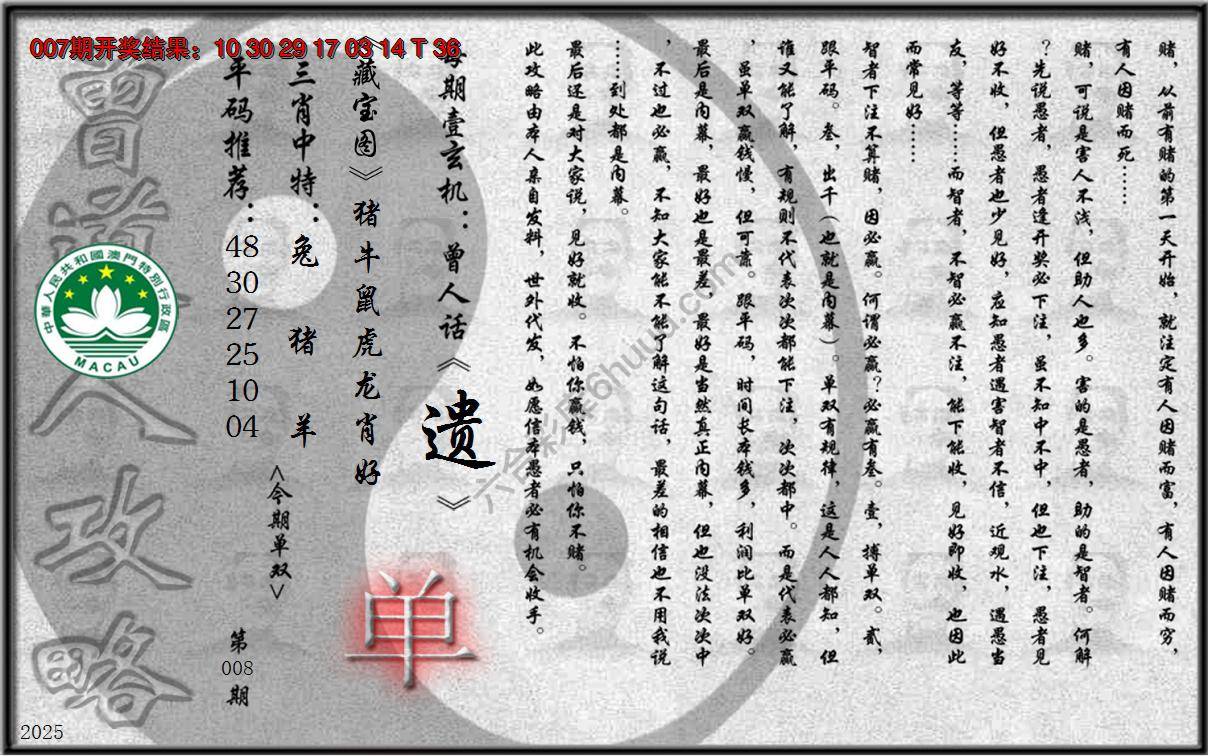 007期开奖结果：10 30 29 17 03 14 T 36
赌，从前有赌的第一天开始，就注定有人因赌而富，有人因赌而穷，
有人因赌而死……
赌，可说是害人不浅，但助人也多。害的是愚者，助的是智者。何解
？先说愚者，愚者逢开奖必下注，虽不知中不中，但也下注，愚者见
好不收，但愚者也少见好，应知愚者遇害智者不信，近观水，遇愚当
友，等等……而智者，不智必赢不注，能下能收，见好即收，也因此
而常见好……
智者下注不算赌，因必赢。何谓必赢？必赢有叁。壹，搏单双。贰，
跟平码。叁，出千（也就是内幕）。单双有规律，这是人人都知，但
谁又能了解，有规则不代表次次都能下注，次次都中。而是代表必赢
，虽单双赢钱慢，但可靠。跟平码，时间长本钱多，利润比单双好。
最后是内幕，最好也是最差，最好是当然真正内幕，但也没法次次中
，不过也必赢，不知大家能不能了解这句话，最差的相信也不用我说
……到处都是内幕。
最后还是对大家说，见好就收。不怕你赢钱，只怕你不赌。
此攻略由本人亲自发料，世外代发，如愿信本愚者必有机会收手。
每期壹玄机：曾人话《遗》
《藏宝图》猪牛鼠虎龙肖好
三肖中特：兔 猪 羊
平码推荐：48 30 27 25 10 04
<今期单双>
单
第008期
曾道人攻略
中華人民共和國澳門特別行政區
MACAU
2025